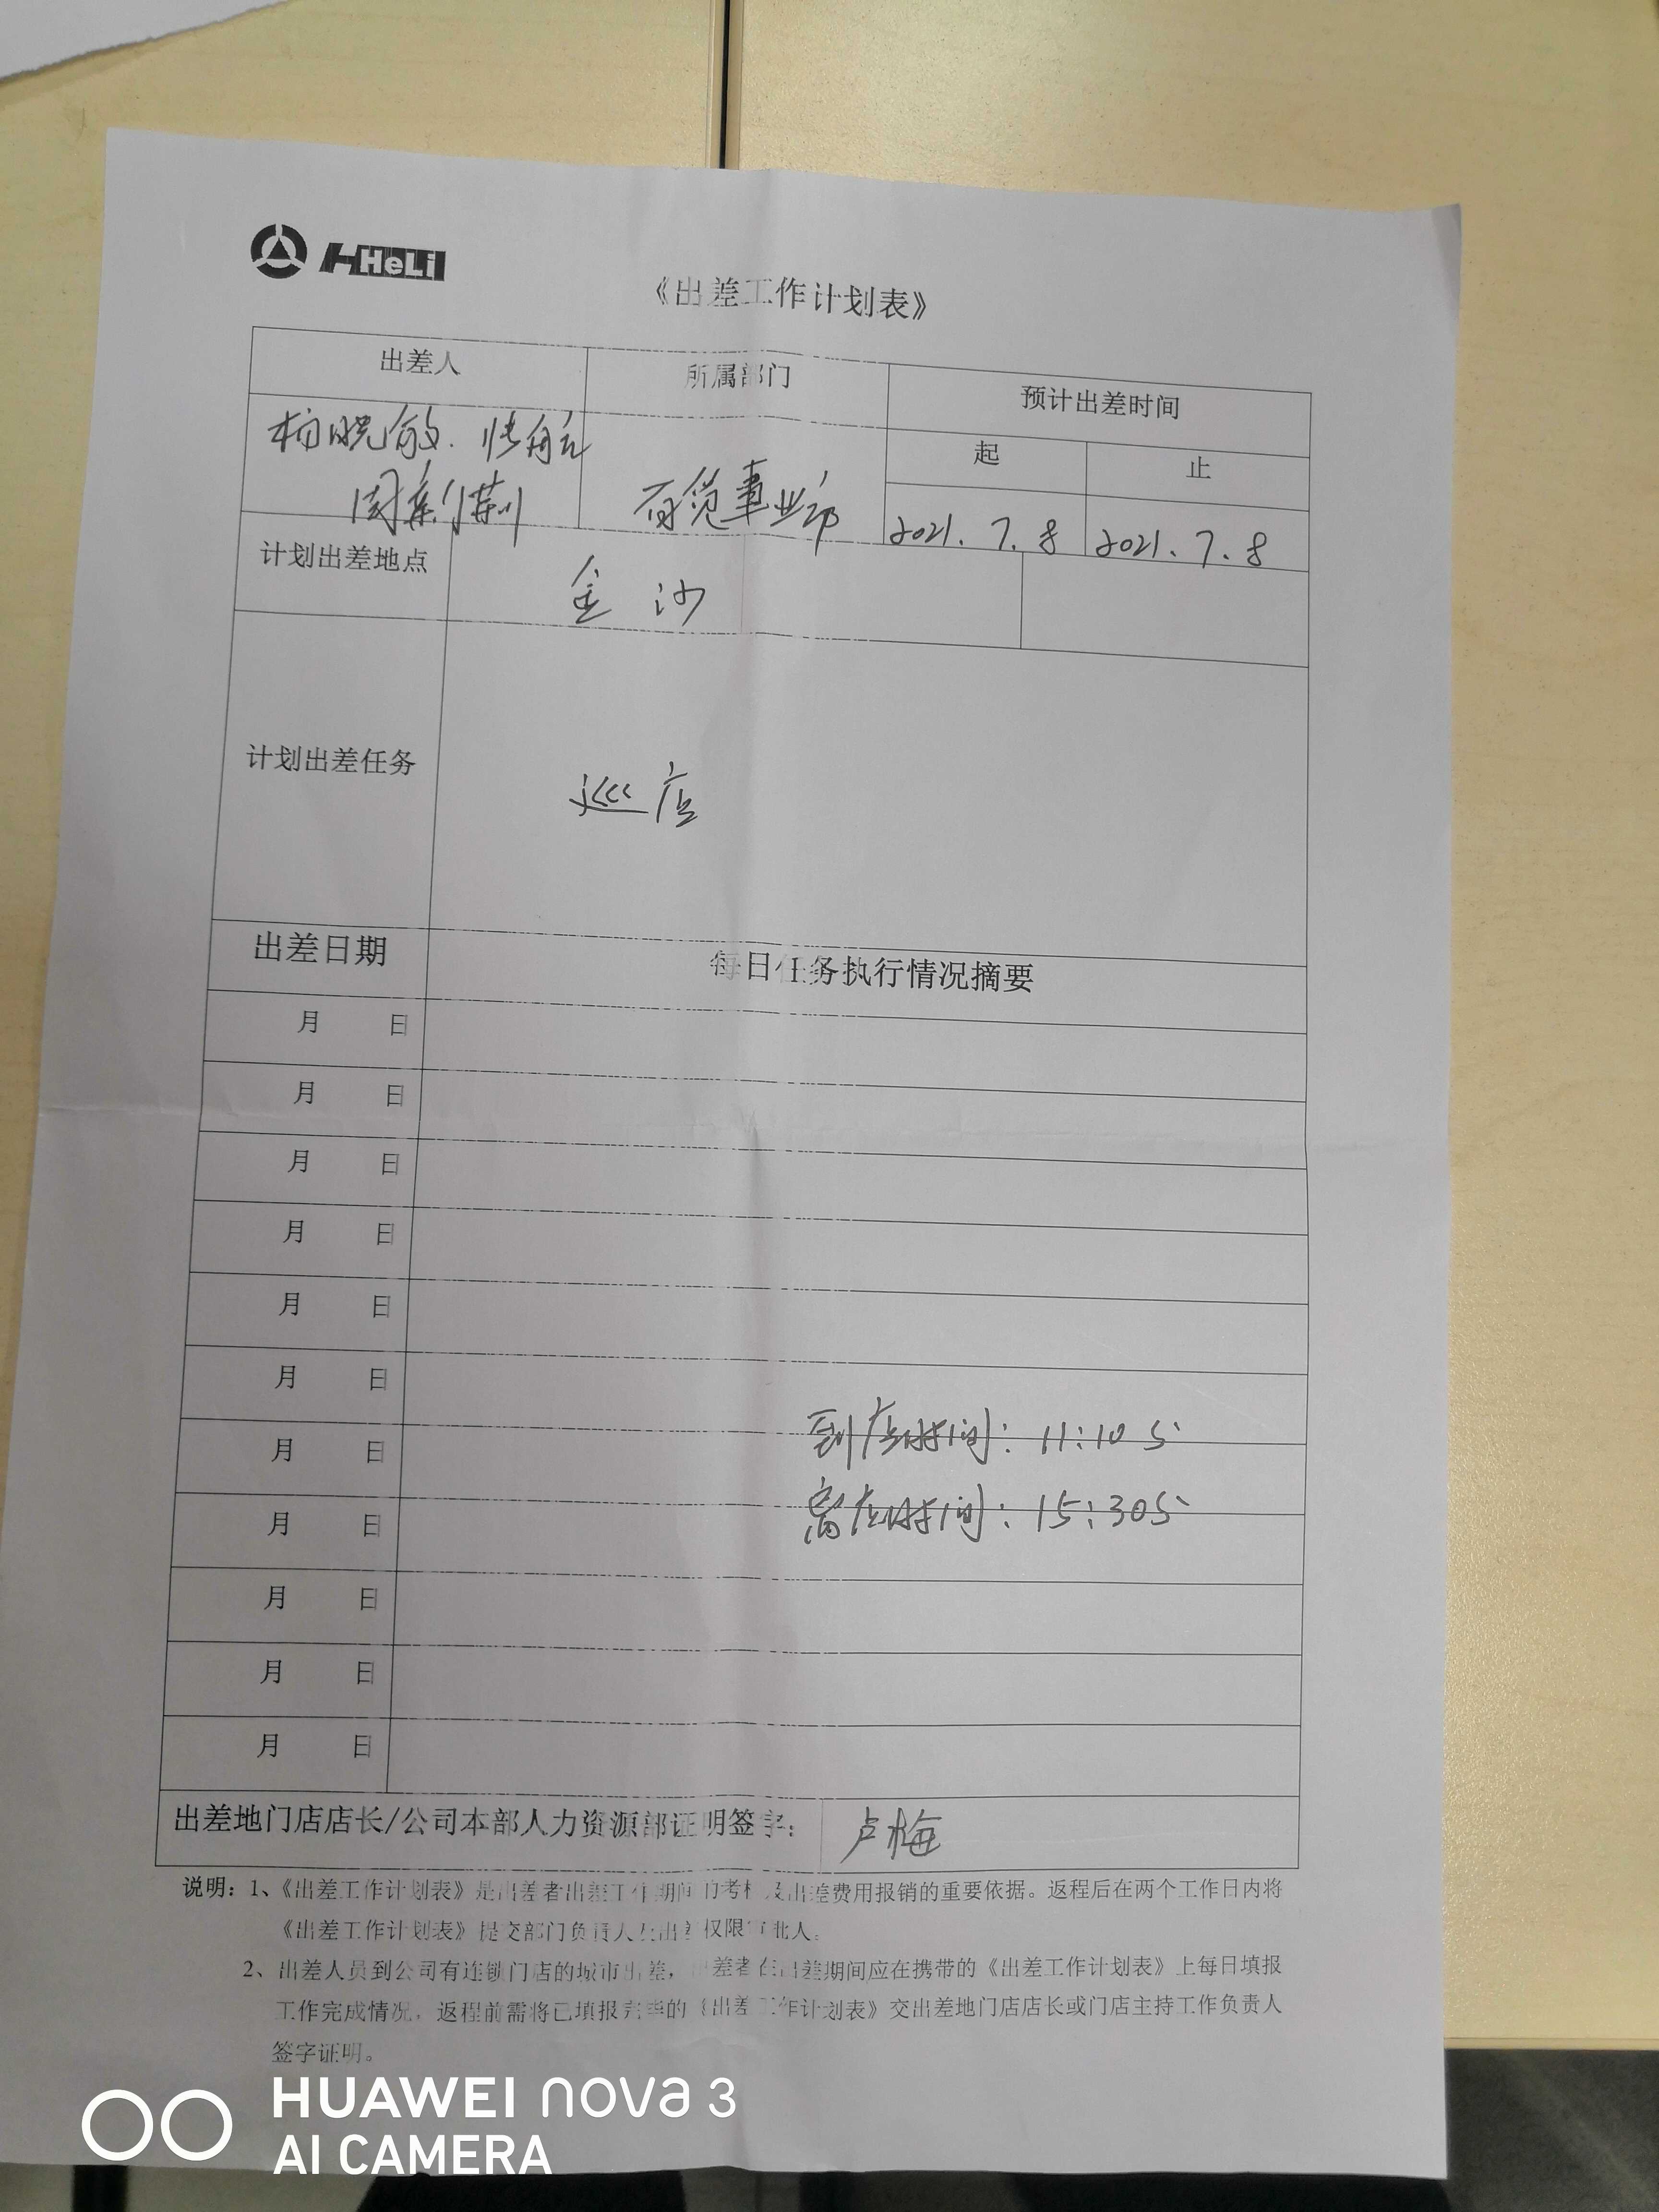 HeLi
《出差工作计划表》
出差人 所属部门 预计出差时间
起 止
杨晓敏. 张航
周 百货事业部 2021.7.8 2021.7.8
计划出差地点 金沙
计划出差任务 巡店
出差日期 每日任务执行情况摘要
月 日
月 日
月 日
月 日
月 日
月 日
到店时间：11:10分
月 日
离店时间：15:30分
月 日
月 日
月 日
月 日
出差地门店店长/公司本部人力资源部证明签字： 卢梅
说明：1、《出差工作计划表》是出差者出差工作期间的考核及出差费用报销的重要依据。返程后在两个工作日内将
《出差工作计划表》提交部门负责人及出差权限审批人。
2、出差人员到公司有连锁门店的城市出差，出差者在出差期间应在携带的《出差工作计划表》上每日填报
工作完成情况，返程前需将已填报完毕的《出差工作计划表》交出差地门店店长或门店主持工作负责人
签字证明。
HUAWEI nova 3
AI CAMERA